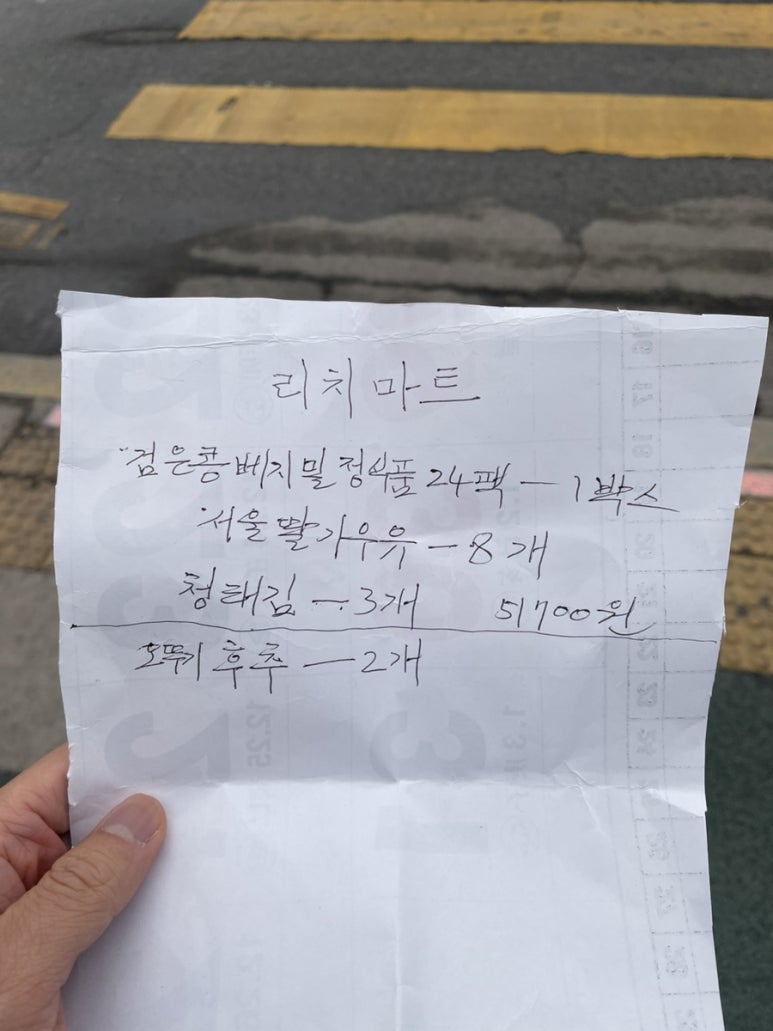 리치마트
검은콩베지밀정식품 24팩 — 1박스
서울딸기우유 — 8개
청태김 — 3개 51700원
오뚜기 후추 — 2개